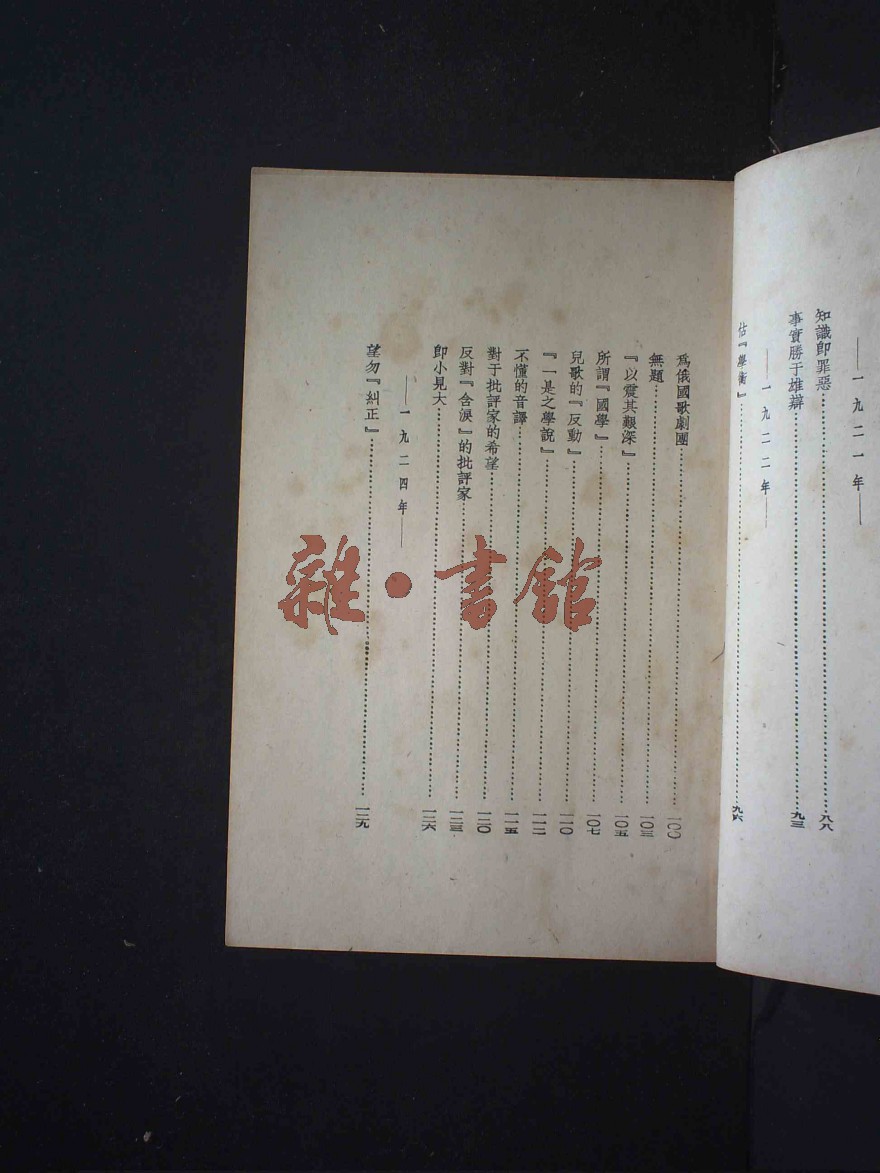 ——一九二一年——
知識即罪惡……八八
事實勝于雄辯……九三
——一九二二年——
估『學衡』……九六
爲俄國歌劇團……一〇〇
無題……一〇三
『以震其艱深』……一〇五
所謂『國學』……一〇七
兒歌的『反動』……一一〇
『一是之學說』……一一二
不懂的音譯……一一五
對于批評家的希望……一二〇
反對『含淚』的批評家……一二三
即小見大……一二六
——一九二四年——
望勿『糾正』……一二九
雜·書館